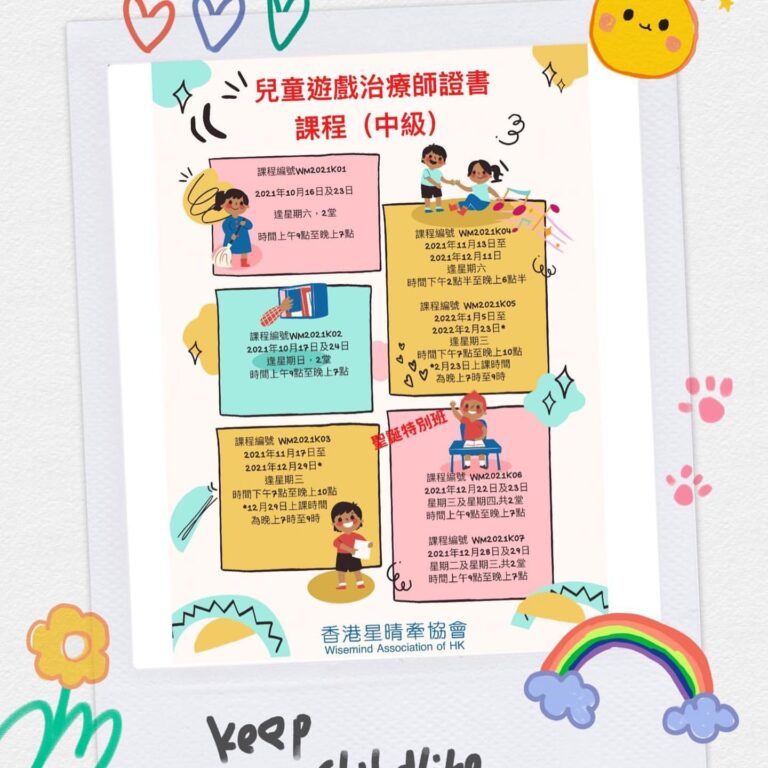 兒童遊戲治療師證書
課程（中級）
課程編號WM2021K01
2021年10月16日及23日
逢星期六，2堂
時間上午9點至晚上7點
課程編號WM2021K02
2021年10月17日及24日
逢星期日，2堂
時間上午9點至晚上7點
課程編號 WM2021K03
2021年11月17日至
2021年12月29日*
逢星期三
時間下午7點至晚上10點
*12月29日上課時間
為晚上7時至9時
課程編號 WM2021K04
2021年11月13日至
2021年12月11日
逢星期六
時間下午2點半至晚上6點半
課程編號 WM2021K05
2022年1月5日至
2022年2月23日*
逢星期三
時間下午7點至晚上10點
*2月23日上課時間
為晚上7時至9時
聖誕特別班
課程編號 WM2021K06
2021年12月22日及23日
星期三及星期四,共2堂
時間上午9點至晚上7點
課程編號 WM2021K07
2021年12月28日及29日
星期二及星期三,共2堂
時間上午9點至晚上7點
香港星晴牽協會
Wisemind Association of HK
keep